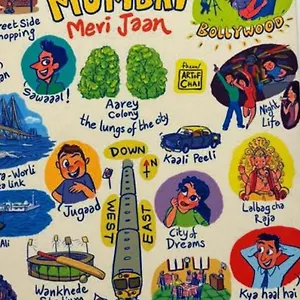 MUMBAI
Meri Jaan
BOLLYWOOD
Street Side
Shopping
Sawaaal!
Aarey
Colony
the lungs of the city
ART OF
CHAI
Night
Life
Kaali Peeli
DOWN
WEST
EAST
-Worli
Sea link
Jugaad
City of
Dreams
Lalbagcha
Raja
Ali
Wankhede
Stadium
Kya haal hai